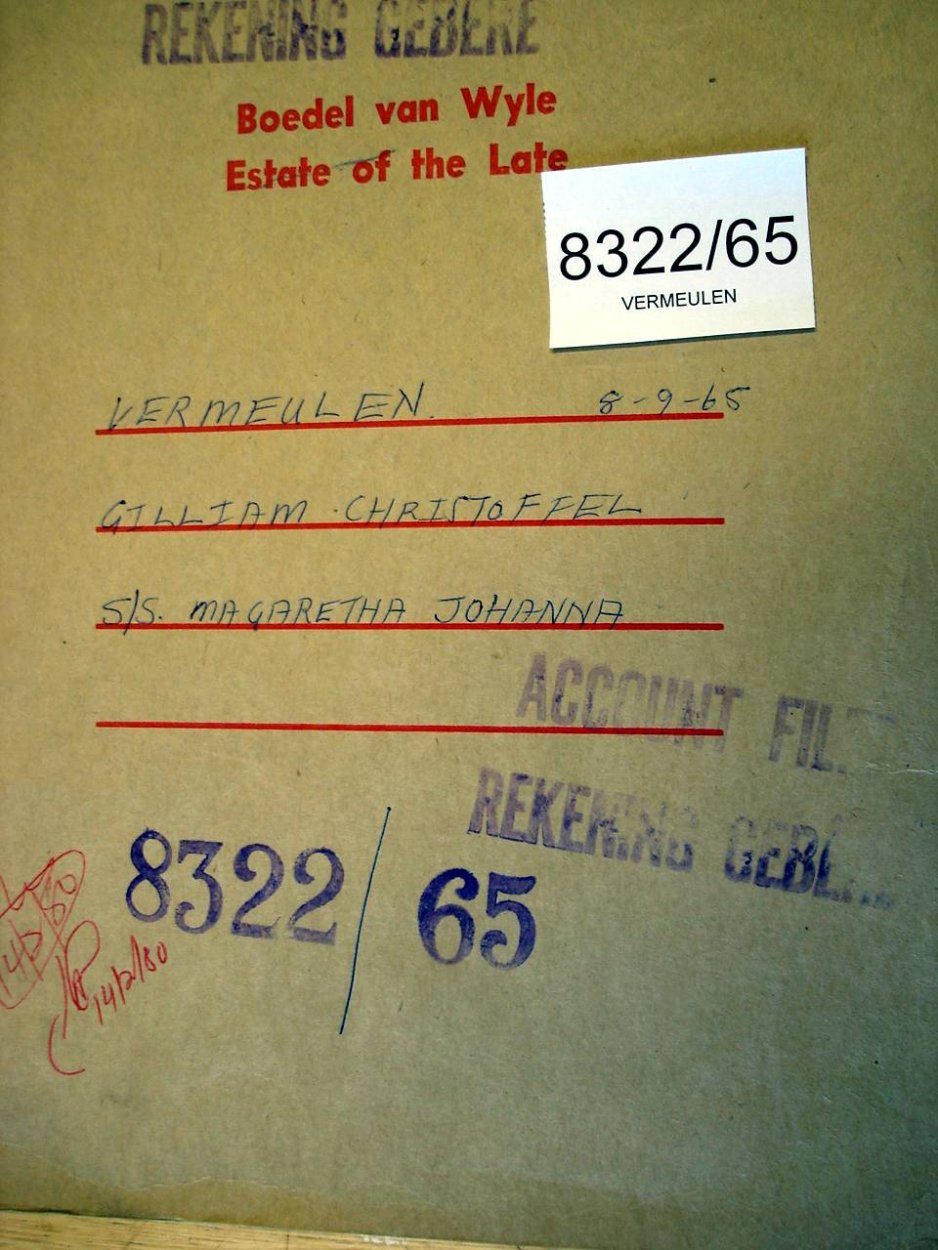 REKENING GEBERE
Boedel van Wyle
Estate of the Late
8322/65
VERMEULEN
VERMEULEN. 8-9-65
GILLIAM CHRISTOFFEL
S/S. MAGARETHA JOHANNA
ACCOUNT FIL
REKENING GEBE
8322/65
14/2/80
14/2/80